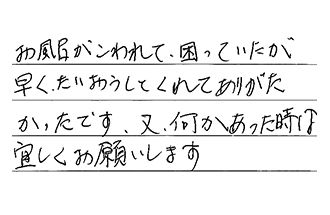 お風呂がこわれて、困っていたが
早く、たいおうしてくれてありがた
かったです、又、何かあった時は
宜しくお願いします